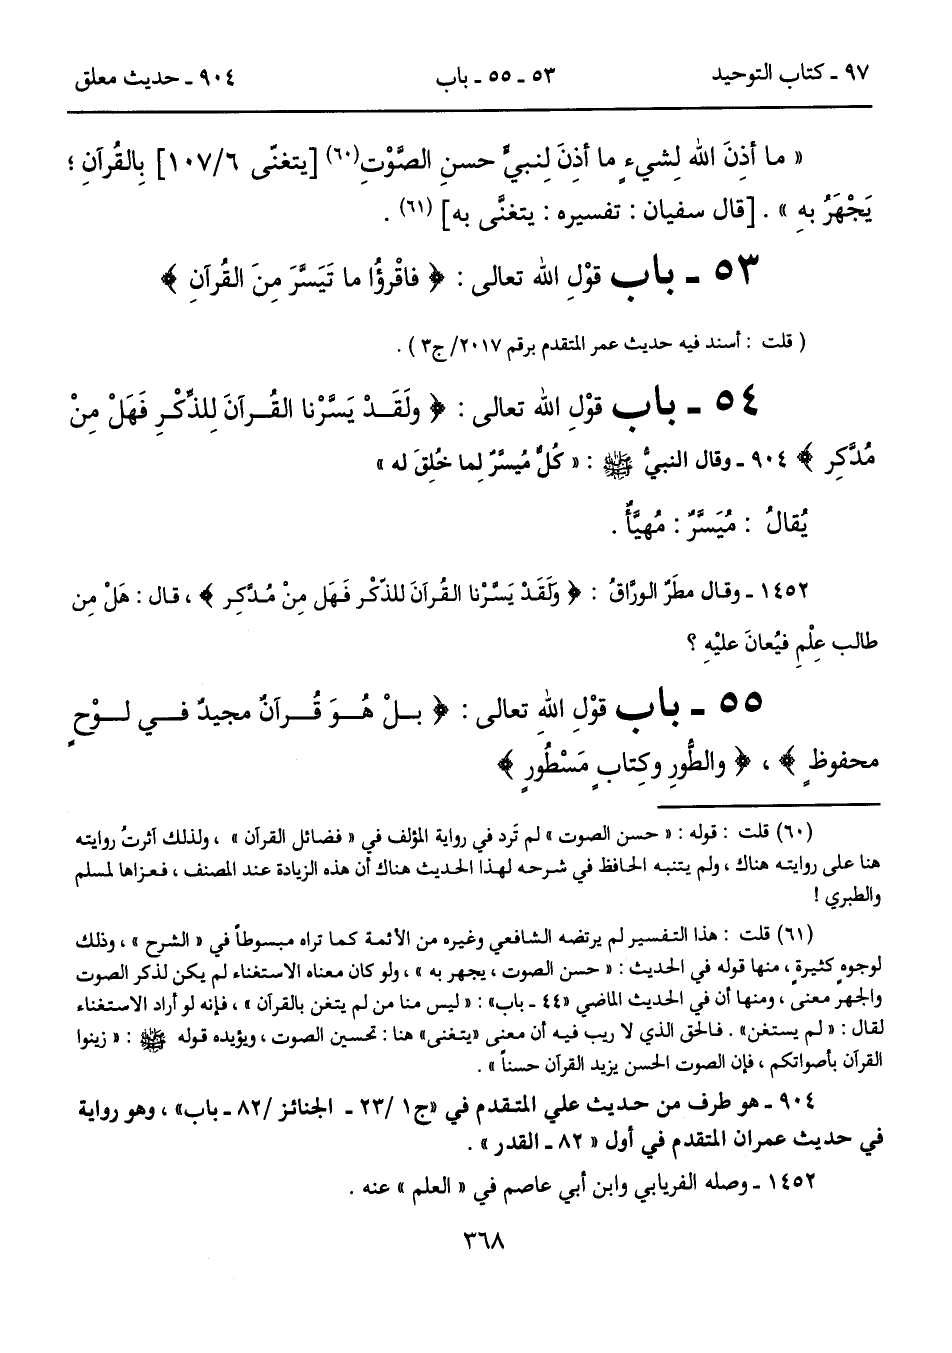 ٩٧ ـ كتاب التوحيد ٥٣ ـ ٥٥ ـ باب ٩٠٤ ـ حديث معلق
« ما أذِنَ الله لِشيءٍ ما أذِنَ لِنبيٍّ حسنِ الصَّوْتِ(٦٠) [يتغنّى ١٠٧/٦] بِالقُرآنِ ؛
يَجْهَرُ بهِ » . [قال سفيان : تفسيره : يتغنَّى به] (٦١) .
٥٣ ـ باب قوْلِ اللهِ تعالى : ﴿ فاقْرؤُا ما تَيَسَّرَ مِنَ القُرآنِ ﴾
( قلت : أسند فيه حديث عمر المتقدم برقم ٢٠١٧/ ج٣ ) .
٥٤ ـ باب قوْلِ اللهِ تعالى : ﴿ ولَقَدْ يَسَّرْنا القُرآنَ لِلذِّكْرِ فَهَلْ مِنْ
مُدَّكِرٍ ﴾ ٩٠٤ ـ وقال النبيُّ ﷺ : « كُلٌّ مُيسَّرٌ لِما خُلِقَ له »
يُقالُ : مُيَسَّرٌ : مُهيَّأٌ .
١٤٥٢ ـ وقال مطَرٌ الورَّاقُ : ﴿ وَلَقَدْ يَسَّرْنا القُرآنَ للذّكْر فَهَل مِنْ مُدَّكِر ﴾ ، قال : هَلْ مِن
طالب عِلْمٍ فيُعانَ عليْهِ ؟
٥٥ ـ باب قوْلِ اللهِ تعالى : ﴿ بلْ هُوَ قُرآنٌ مجيدٌ في لوْحٍ
محفوظٍ ﴾ ، ﴿ والطُّورِ وكِتابٍ مَسْطُورٍ ﴾
(٦٠) قلت : قوله : « حسن الصوت » لم تَرد في رواية المؤلف في « فضائل القرآن » ، ولذلك آثرتُ روايته
هنا على روايته هناك ، ولم يتنبه الحافظ في شرحه لهذا الحديث هناك أن هذه الزيادة عند المصنف ، فعزاها لمسلم
والطبري !
(٦١) قلت : هذا التفسير لم يرتضه الشافعي وغيره من الأئمة كما تراه مبسوطاً في « الشرح » ، وذلك
لوجوه كثيرةٍ ، منها قوله في الحديث : « حسن الصوت ، يجهر به » ، ولو كان معناه الاستغناء لم يكن لذكر الصوت
والجهر معنى ، ومنها أن في الحديث الماضي «٤٤ ـ باب» : « ليس منا من لم يتغن بالقرآن » ، فإنه لو أراد الاستغناء
لقال : « لم يستغن» . فالحق الذي لا ريب فيه أن معنى «يتغنى» هنا : تحسين الصوت ، ويؤيده قوله ﷺ : « زينوا
القرآن بأصواتكم ، فإن الصوت الحسن يزيد القرآن حسناً » .
٩٠٤ ـ هو طرف من حديث علي المتقدم في «ج١ /٢٣ ـ الجنائز /٨٢ ـ باب» ، وهو رواية
في حديث عمران المتقدم في أول « ٨٢ ـ القدر » .
١٤٥٢ ـ وصله الفريابي وابن أبي عاصم في « العلم » عنه .
٣٦٨